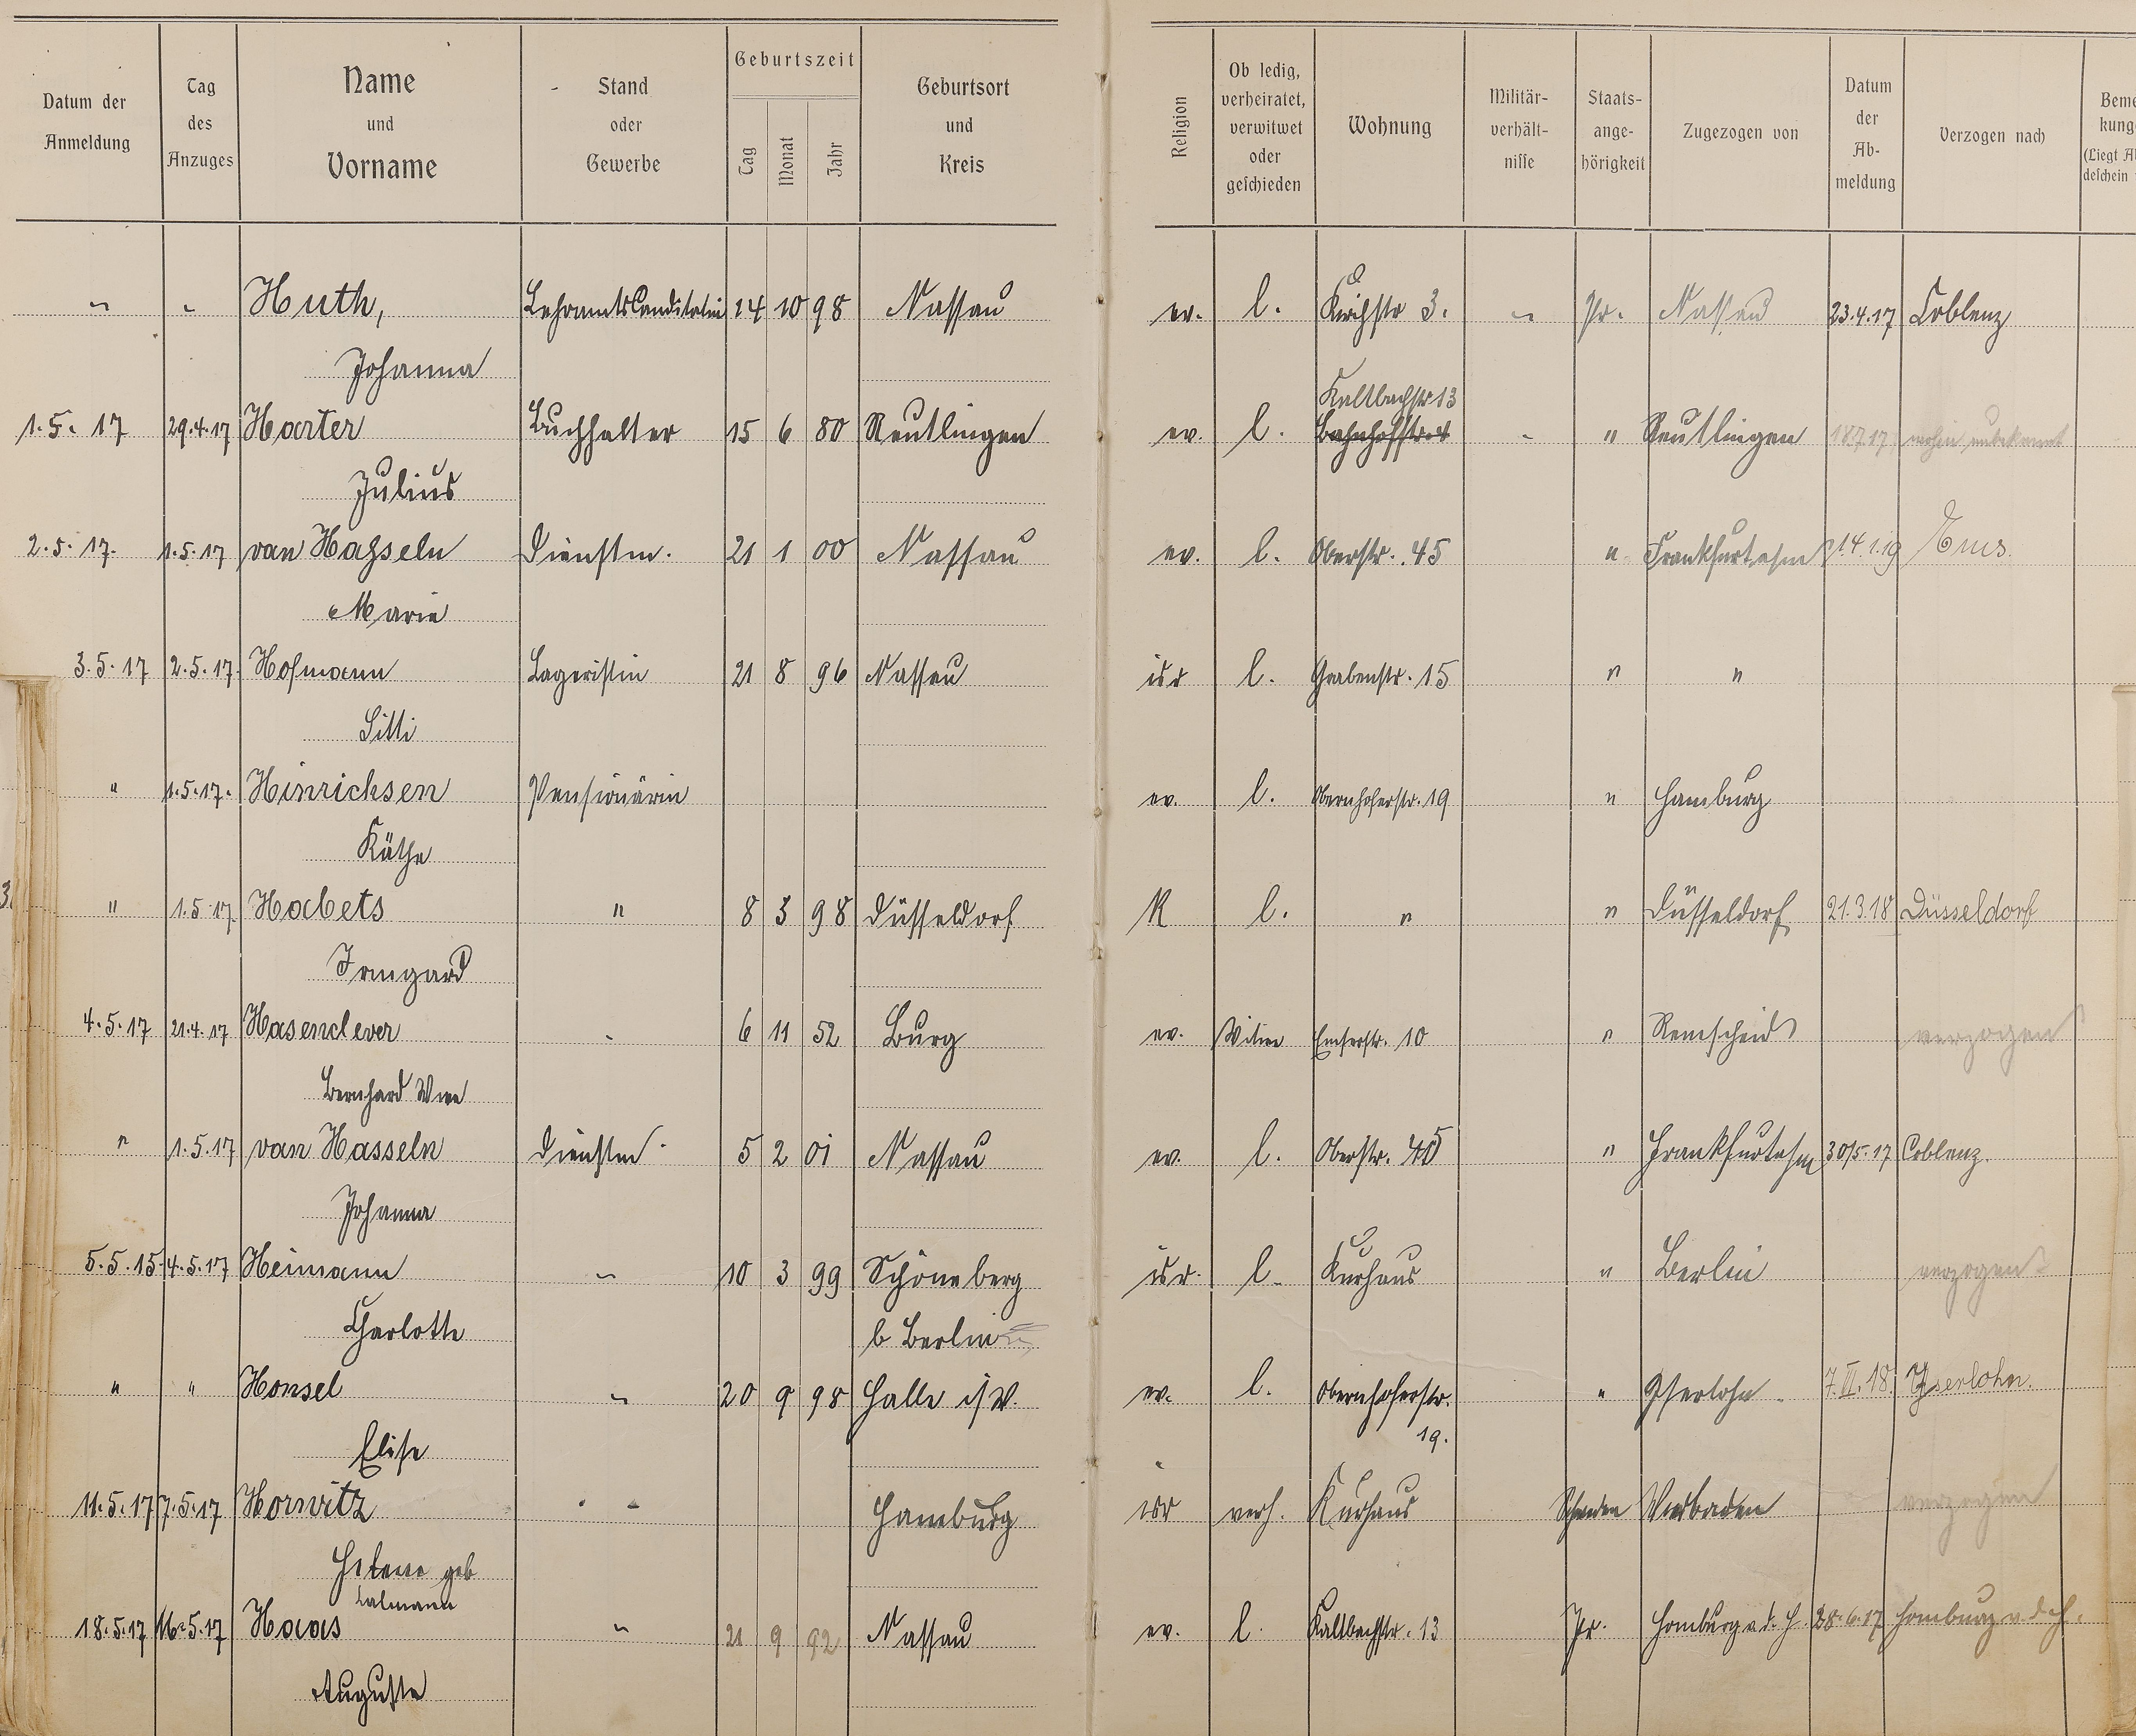 Datum der Anmeldung | Tag des Anzuges | Name und Vorname | Stand oder Gewerbe | Geburtszeit Tag | Monat | Jahr | Geburtsort und Kreis | Religion | Ob ledig, verheiratet, verwitwet oder geschieden | Wohnung | Militär-verhält-nisse | Staats-ange-hörigkeit | Zugezogen von | Datum der Ab-meldung | Verzogen nach | Beme kung (Liegt A deschein
" | " | Huth, | Lehramtscanditatin | 14 | 10 | 98 | Nassau | ev. | l. | Kirchstr 3. | " | Pr. | Nassau | 23.4.17 | Coblenz
Johanna
Kaltbachstr 13
1.5.17 | 29.4.17 | Harter | Buchhalter | 15 | 6 | 80 | Reutlingen | ev. | l. | Bahnhofstr. 4 | - | " | Reutlingen | 18.7.17 | wohin unbekannt
Julius
2.5.17. | 1.5.17 | van Haßseln | Dienstm. | 21 | 1 | 00 | Nassau | ev. | l. | Oberstr. 45 | " | Frankfurt a/m | 14.1.19 | Ems.
Marie
3.5.17 | 2.5.17. | Hofmann | Lageristin | 21 | 8 | 96 | Nassau | isr | l. | Grabenstr. 15 | " | "
Litti
" | 1.5.17. | Hinrichsen | Pensionärin | ev. | l. | Obernhoferstr. 19 | " | Hamburg
Käthe
" | 1.5.17. | Habets | " | 8 | 3 | 98 | Düsseldorf | K | l. | " | " | Düsseldorf | 21.3.18 | Düsseldorf
Irmgard
4.5.17 | 21.4.17 | Hasenclever | - | 6 | 11 | 52 | Burg | ev. | Witwe | Emserstr. 10 | " | Remscheid | verzogen
Bernhard Wwe
" | 1.5.17 | van Hasseln | Dienstm. | 5 | 2 | 01 | Nassau | ev. | l. | Oberstr. 45 | " | Frankfurt a/m | 30/5.17 | Coblenz.
Johanna
5.5.15. | 4.5.17 | Heimann | " | 10 | 3 | 99 | Schöneberg | isr. | l. | Kurhaus | " | Berlin | verzogen
Charlotte | b Berlin
" | " | Honsel | " | 20 | 9 | 98 | Halle i/W. | ev. | l. | Obernhoferstr. | " | Iserlohn. | 7.VI.18. | Iserlohn.
19.
Elise
11.5.17 | 7.5.17 | Horwitz | - - | Hamburg | isr | verh. | Kurhaus | Schweden | Wiesbaden | verzogen
Helene geb
18.5.17 | 16.5.17 | Haas | " | 21 | 9 | 92 | Nassau | ev. | l. | Kaltbachstr. 13 | Pr. | Homburg v. d. H. | 28.6.17 | Homburg v. d. H.
Auguste